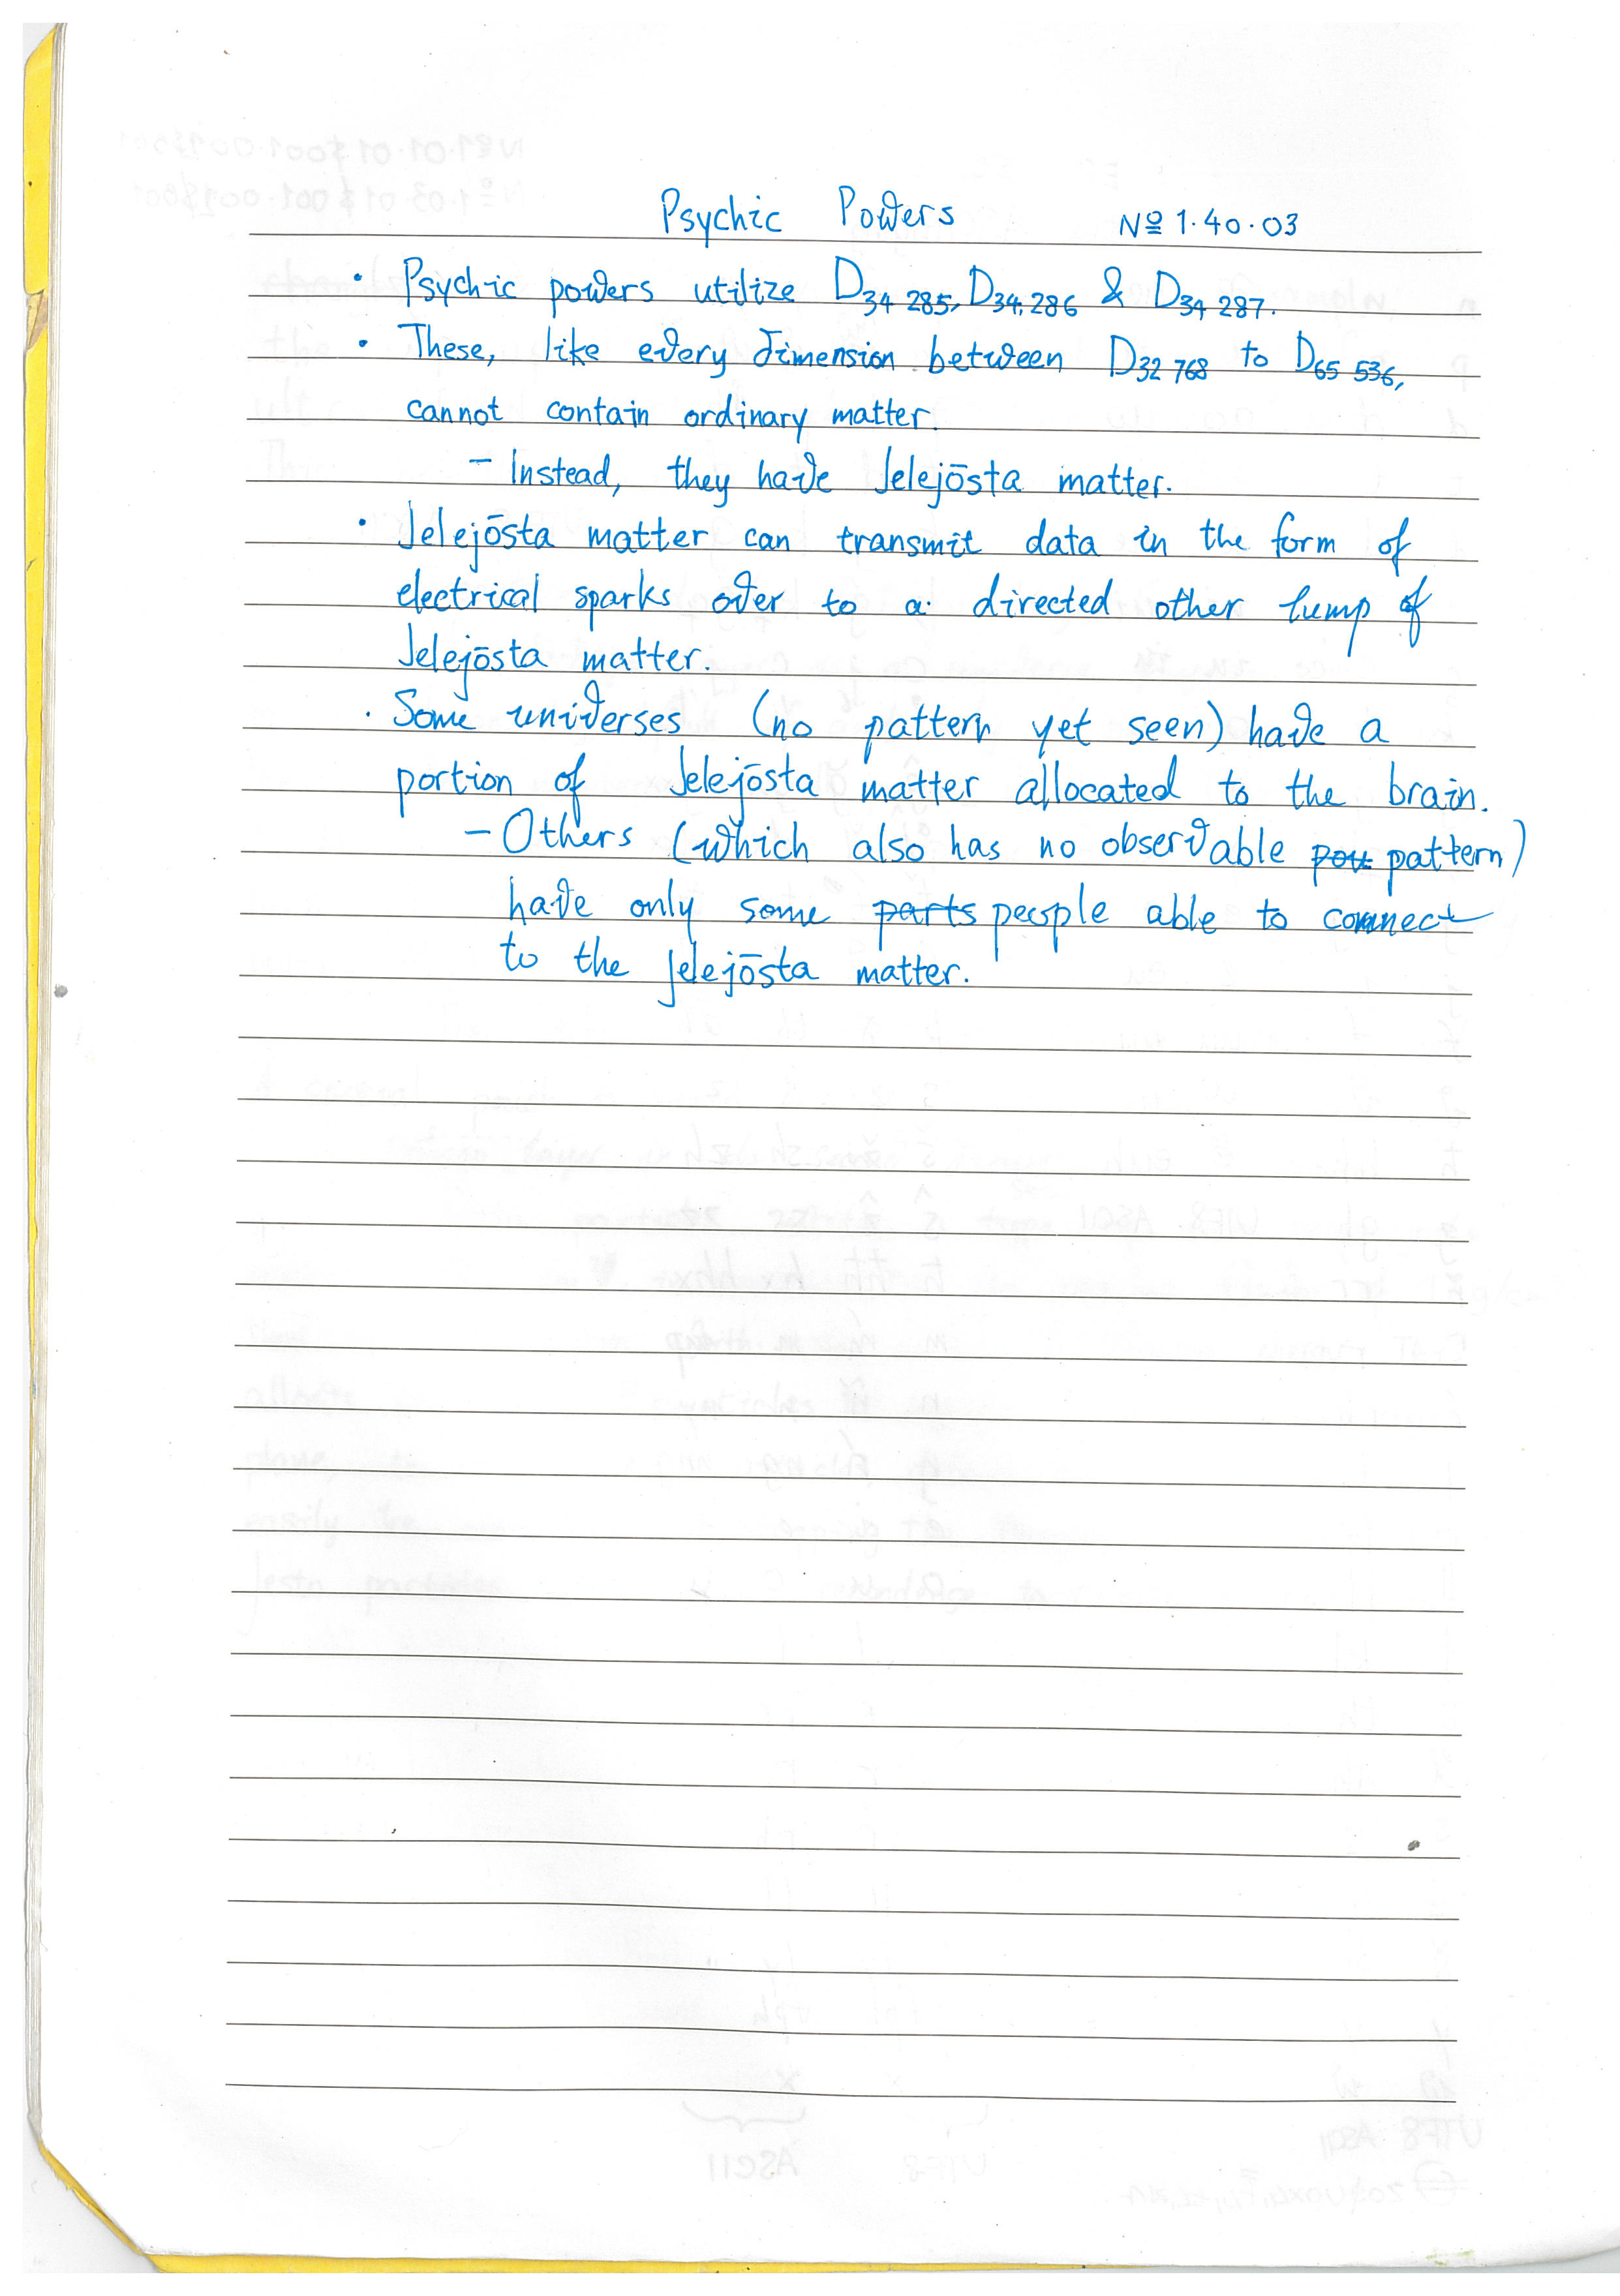 Psychic Powers Nº 1.40.03
• Psychic powers utilize D34 285, D34,286 & D34 287.
• These, like every dimension between D32 768 to D65 536,
cannot contain ordinary matter.
- Instead, they have Jelejōsta matter.
• Jelejōsta matter can transmit data in the form of
electrical sparks over to a directed other lump of
Jelejōsta matter.
• Some universes (no pattern yet seen) have a
portion of Jelejōsta matter allocated to the brain.
- Others (which also has no observable pou pattern)
have only some parts people able to connect
to the Jelejōsta matter.